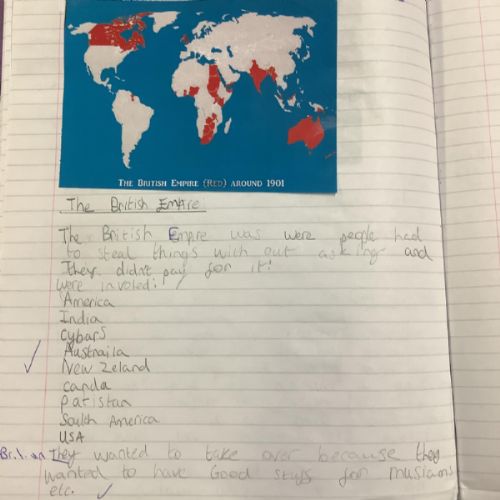 THE BRITISH EMPIRE (RED) AROUND 1901
The British Empire
The British Empire was were people had
to steal things with out asking and
They didnt pay for it!
were involed:
America
India
Cybars
Austraila
New Zeland
canda
Patistan
South America
USA
They wanted to take over because they
wanted to have Good stuys for musioms
etc.